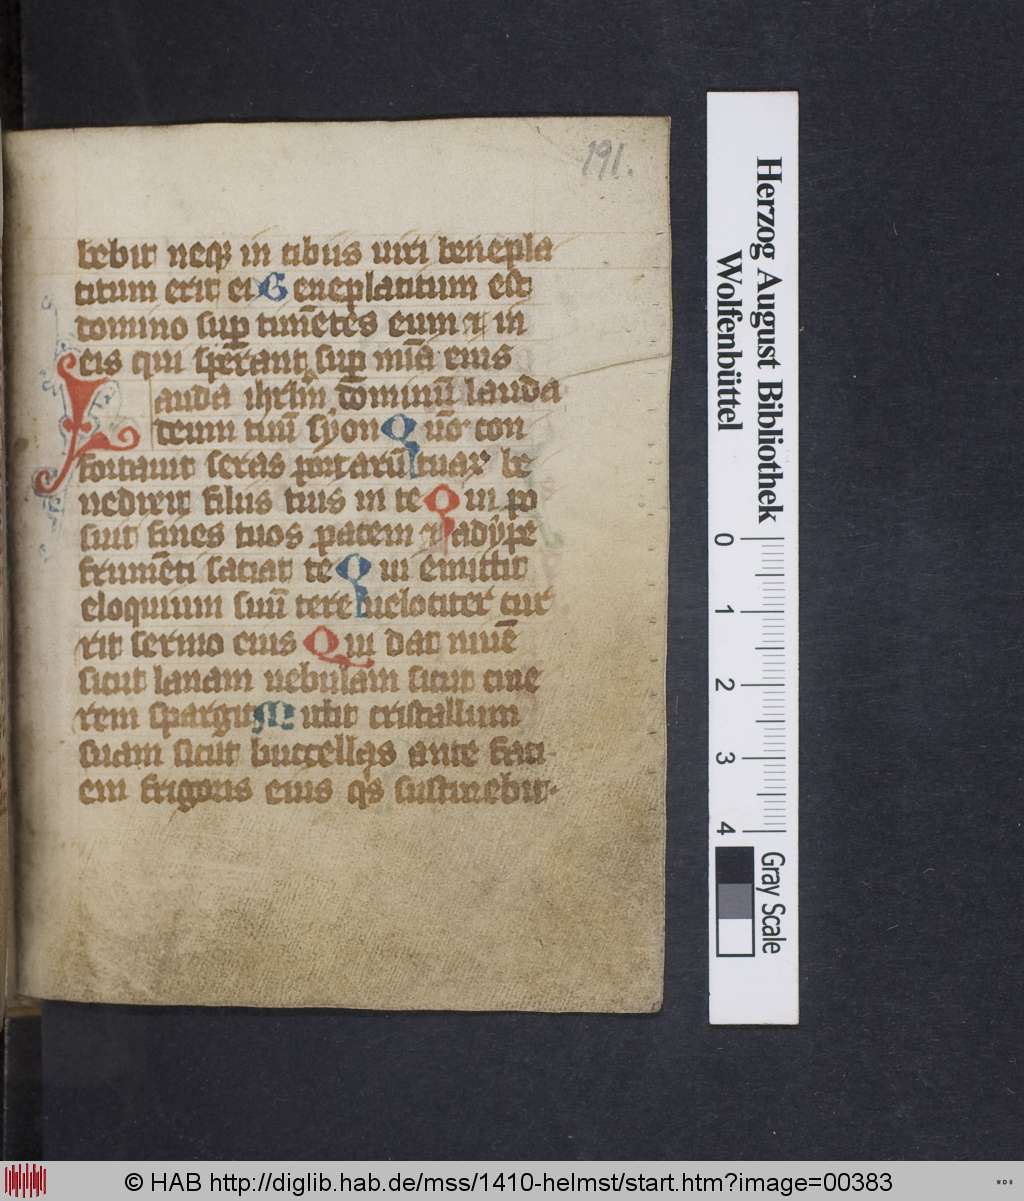 191.
bebit neq; in tibiis uiri benepla
citum erit ei Beneplacitum est
domino sup timētes eum ⁊ in
eis qui sperant sup mīa eius
Lauda ihrlm dominū lauda
deum tuū syon Qm̄ con
fortauit seras portarū tuar be
nedixit filiis tuis in te Qui po
suit fines tuos pacem ⁊ adype
frumēti saciat te Qui emittit
eloquium suū terre uelociter cur
rit sermo eius Qui dat niuē
sicut lanam nebulam sicut cine
rem spargit Mittit cristallum
suam sicut buccellas ante faci
em frigoris eius qͥs sustinebit
Herzog August Bibliothek
Wolfenbüttel
0 1 2 3 4
Gray Scale
© HAB http://diglib.hab.de/mss/1410-helmst/start.htm?image=00383